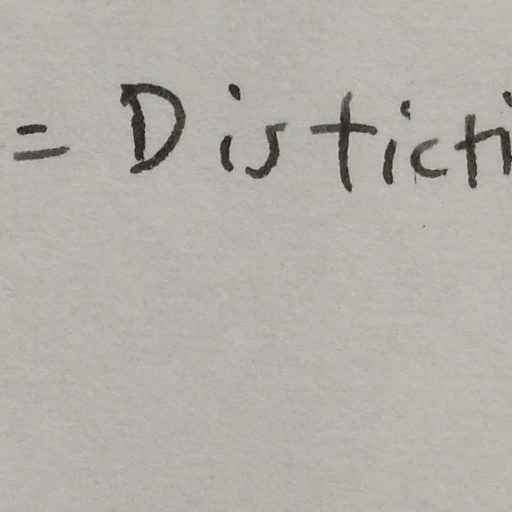 = Disticti